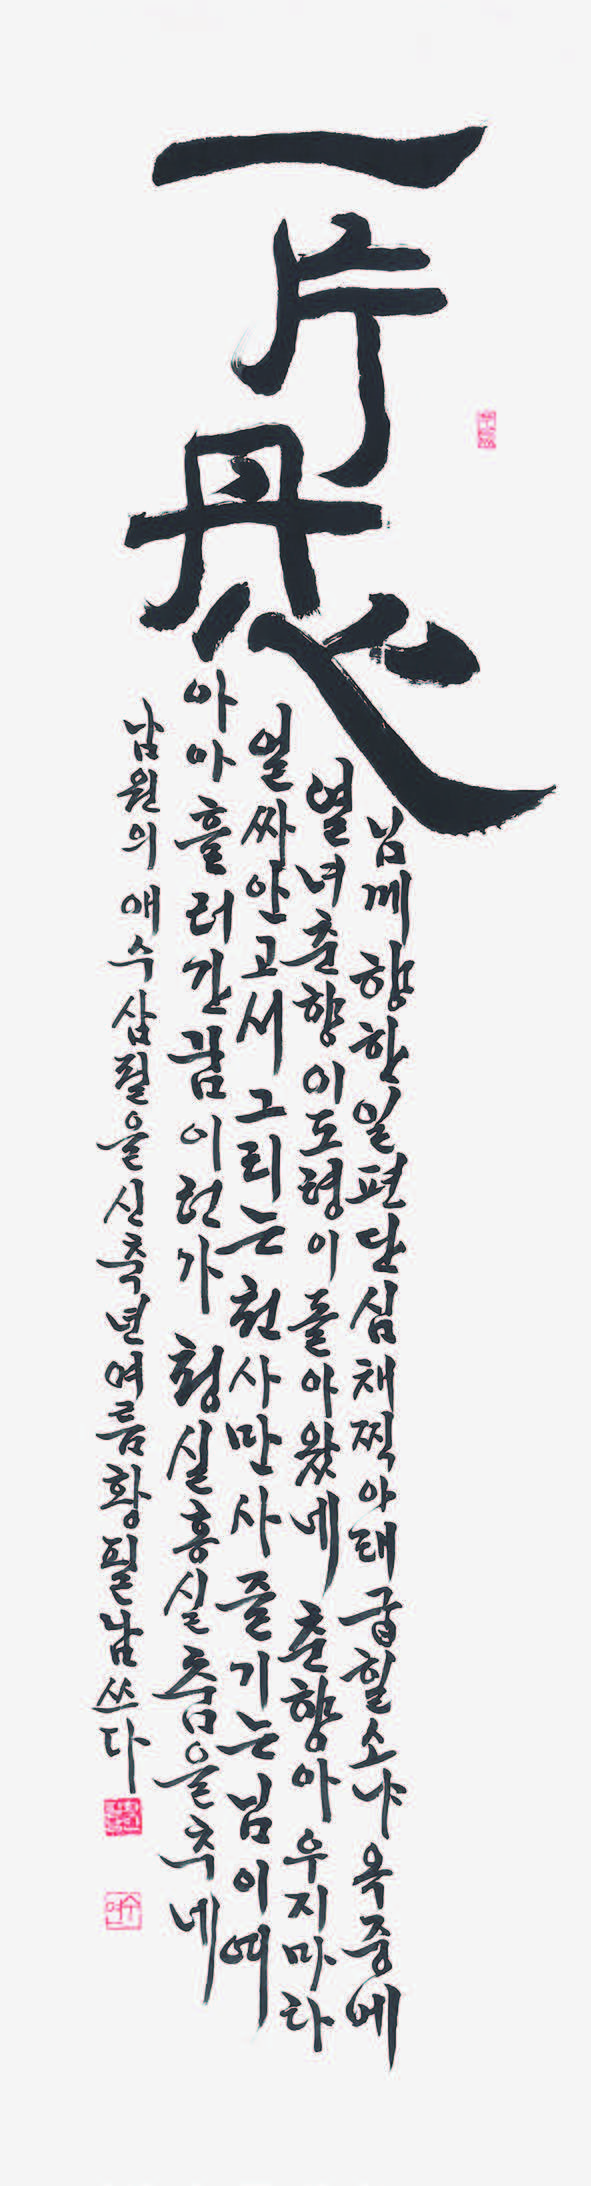 一片丹心
님께 향한 일편단심 채찍아래 굽힐소냐 옥중에
열녀춘향 이도령이 돌아왔네 춘향아 우지마라
얼싸안고서 그리는 천사만사 즐기는 님이여
아아 흘러간 꿈이런가 청실홍실 춤을추네
남원의 애수 삼절을 신축년 여름 황필남 쓰다